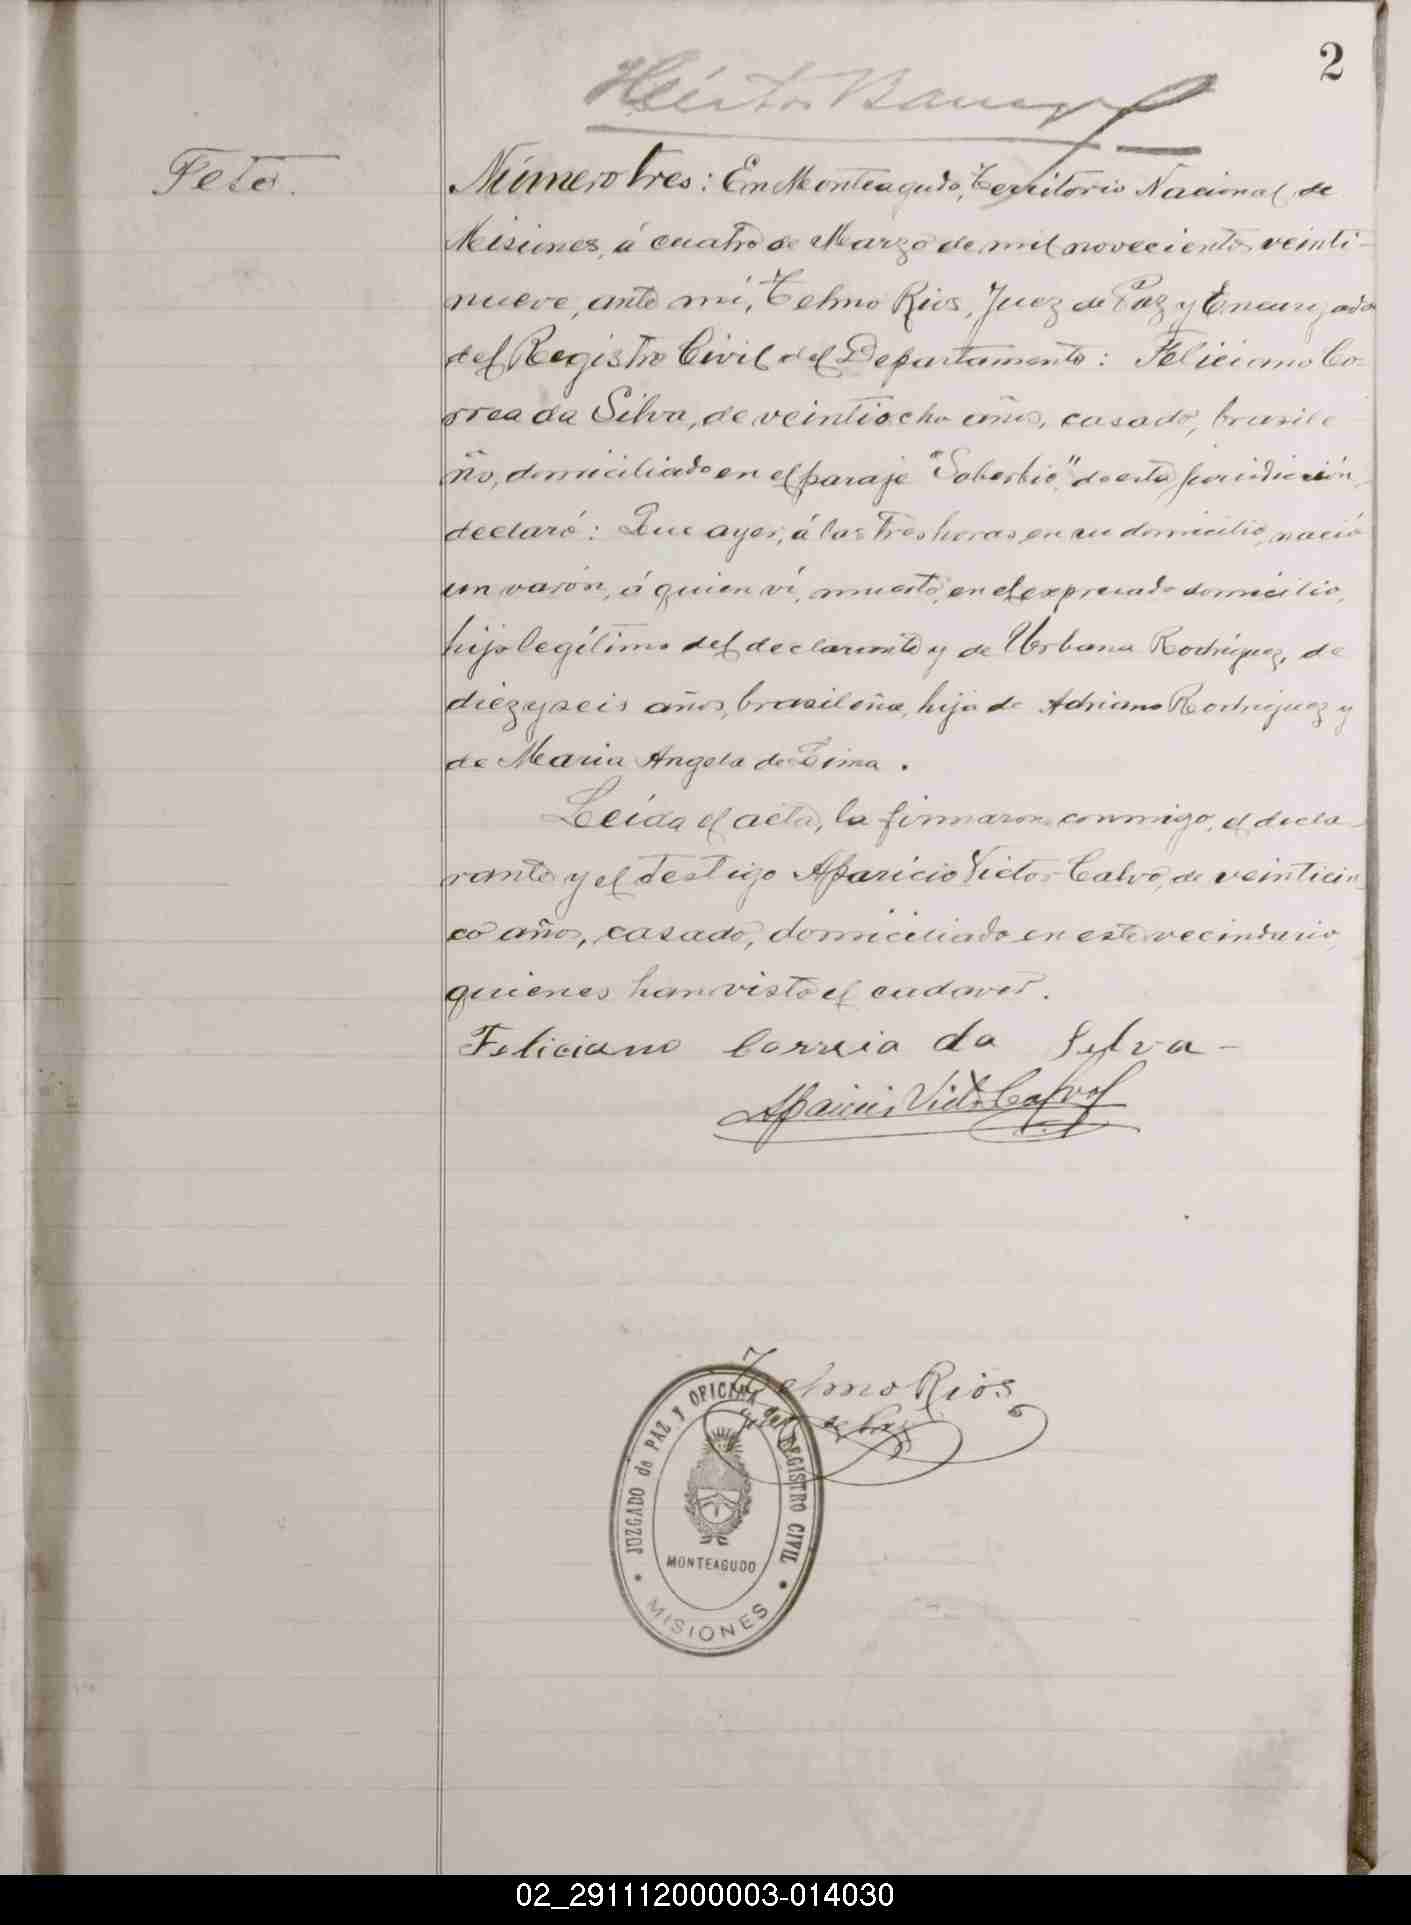 2
Héctor
Feto.
Número tres: En Monteagudo, Territorio Nacional de
Misiones, á cuatro de Marzo de mil novecientos veinti-
nueve, ante mí, Telmo Rios, Juez de Paz y Encargado
del Registro Civil del Departamento: Feliciano Co-
rrea da Silva, de veintiocho años, casado, brasile-
ño, domiciliado en el paraje "Soberbio", de esta jurisdicción,
declaró: Que ayer, á las tres horas, en su domicilio, nació
un varón, á quien ví, muerto, en el expresado domicilio,
hijo legítimo del declarante y de Urbana Rodriguez, de
diez y seis años, brasileña, hija de Adriano Rodriguez y
de Maria Angela de Lima.
Leída el acta, la firmaron conmigo, el decla-
rante y el testigo Aparicio Victor Calvo, de veinticin
co años, casado, domiciliado en este vecindario,
quienes han visto el cadaver.
Feliciano Correia da Selva-
Aparicio Victor Calvo
Telmo Rios
Juez de Paz
JUZGADO de PAZ y OFICINA del REGISTRO CIVIL
MONTEAGUDO
MISIONES
02_291112000003-014030